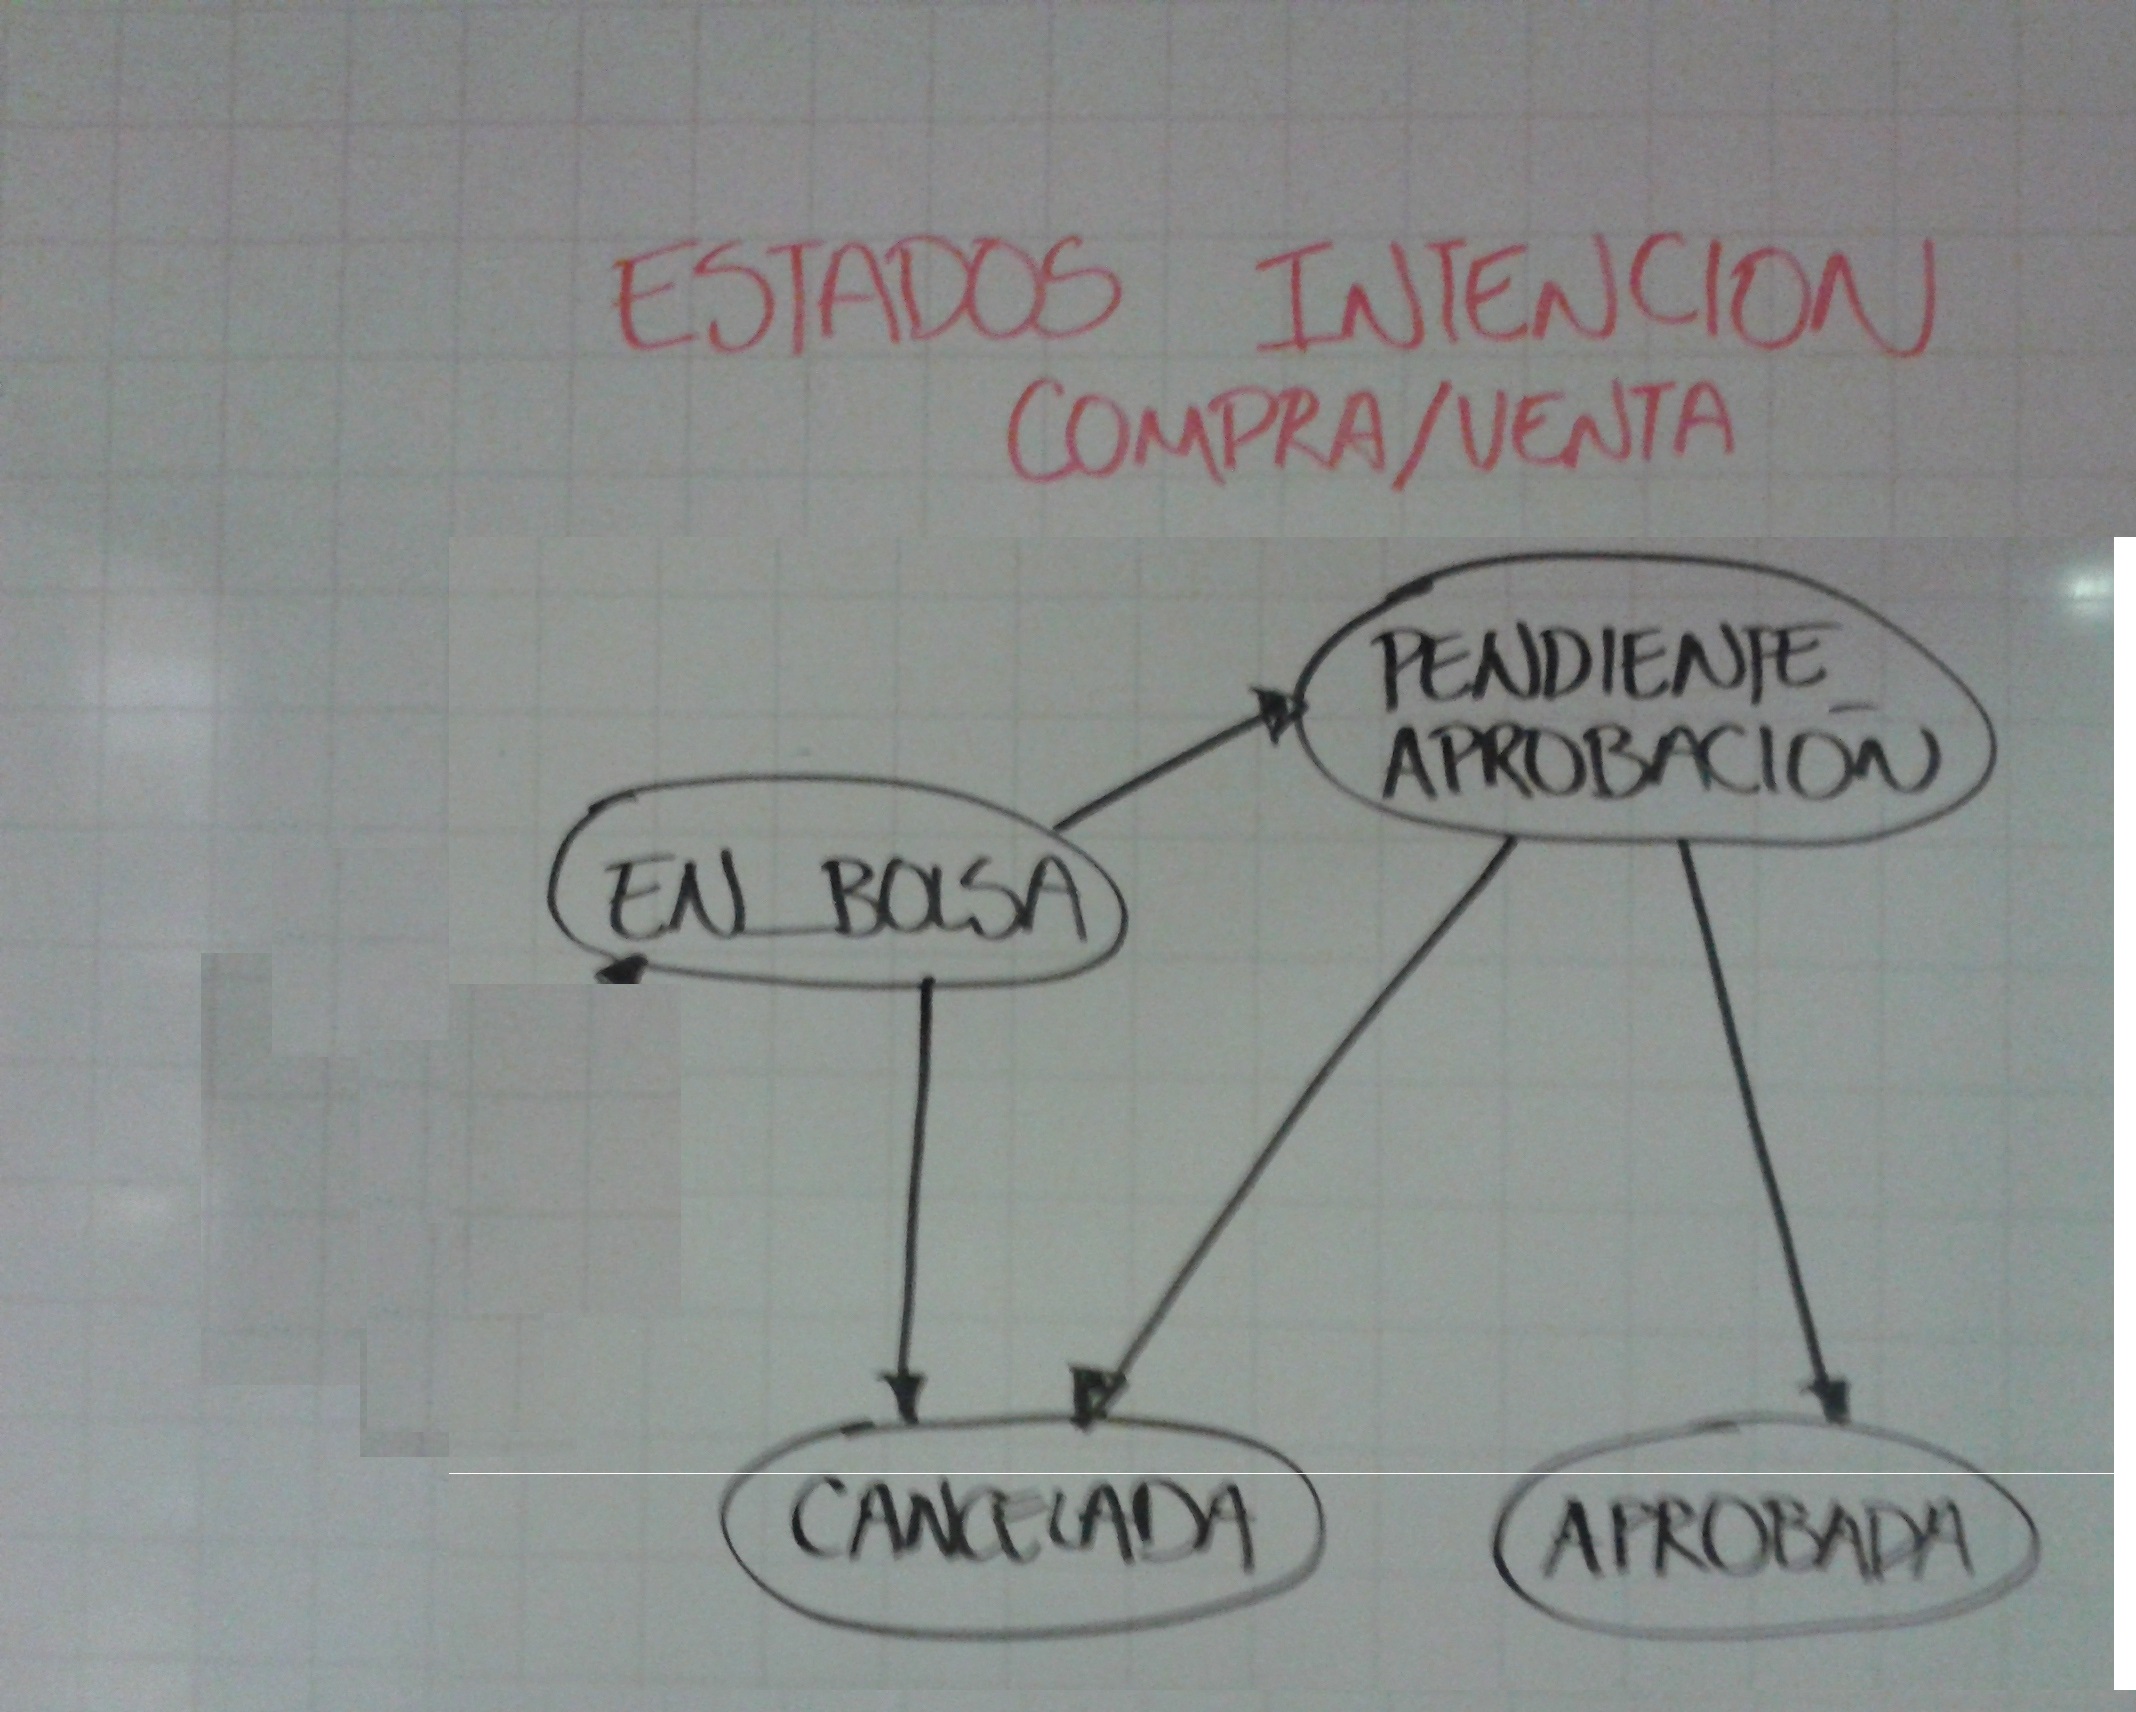 ESTADOS INTENCION
COMPRA/VENTA
PENDIENTE_
APROBACION
EN_BOLSA
CANCELADA
APROBADA